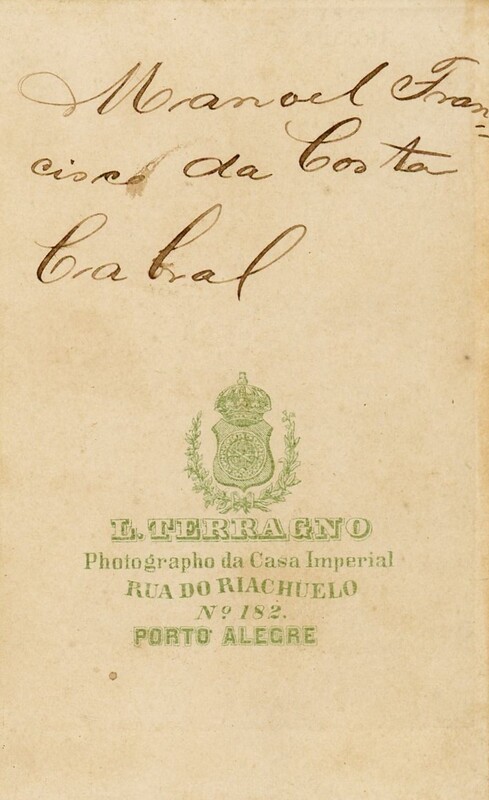 Manoel Fran=
cisco da Costa
Cabral
L. TERRAGNO
Photographo da Casa Imperial
RUA DO RIACHUELO
Nº 182.
PORTO ALEGRE